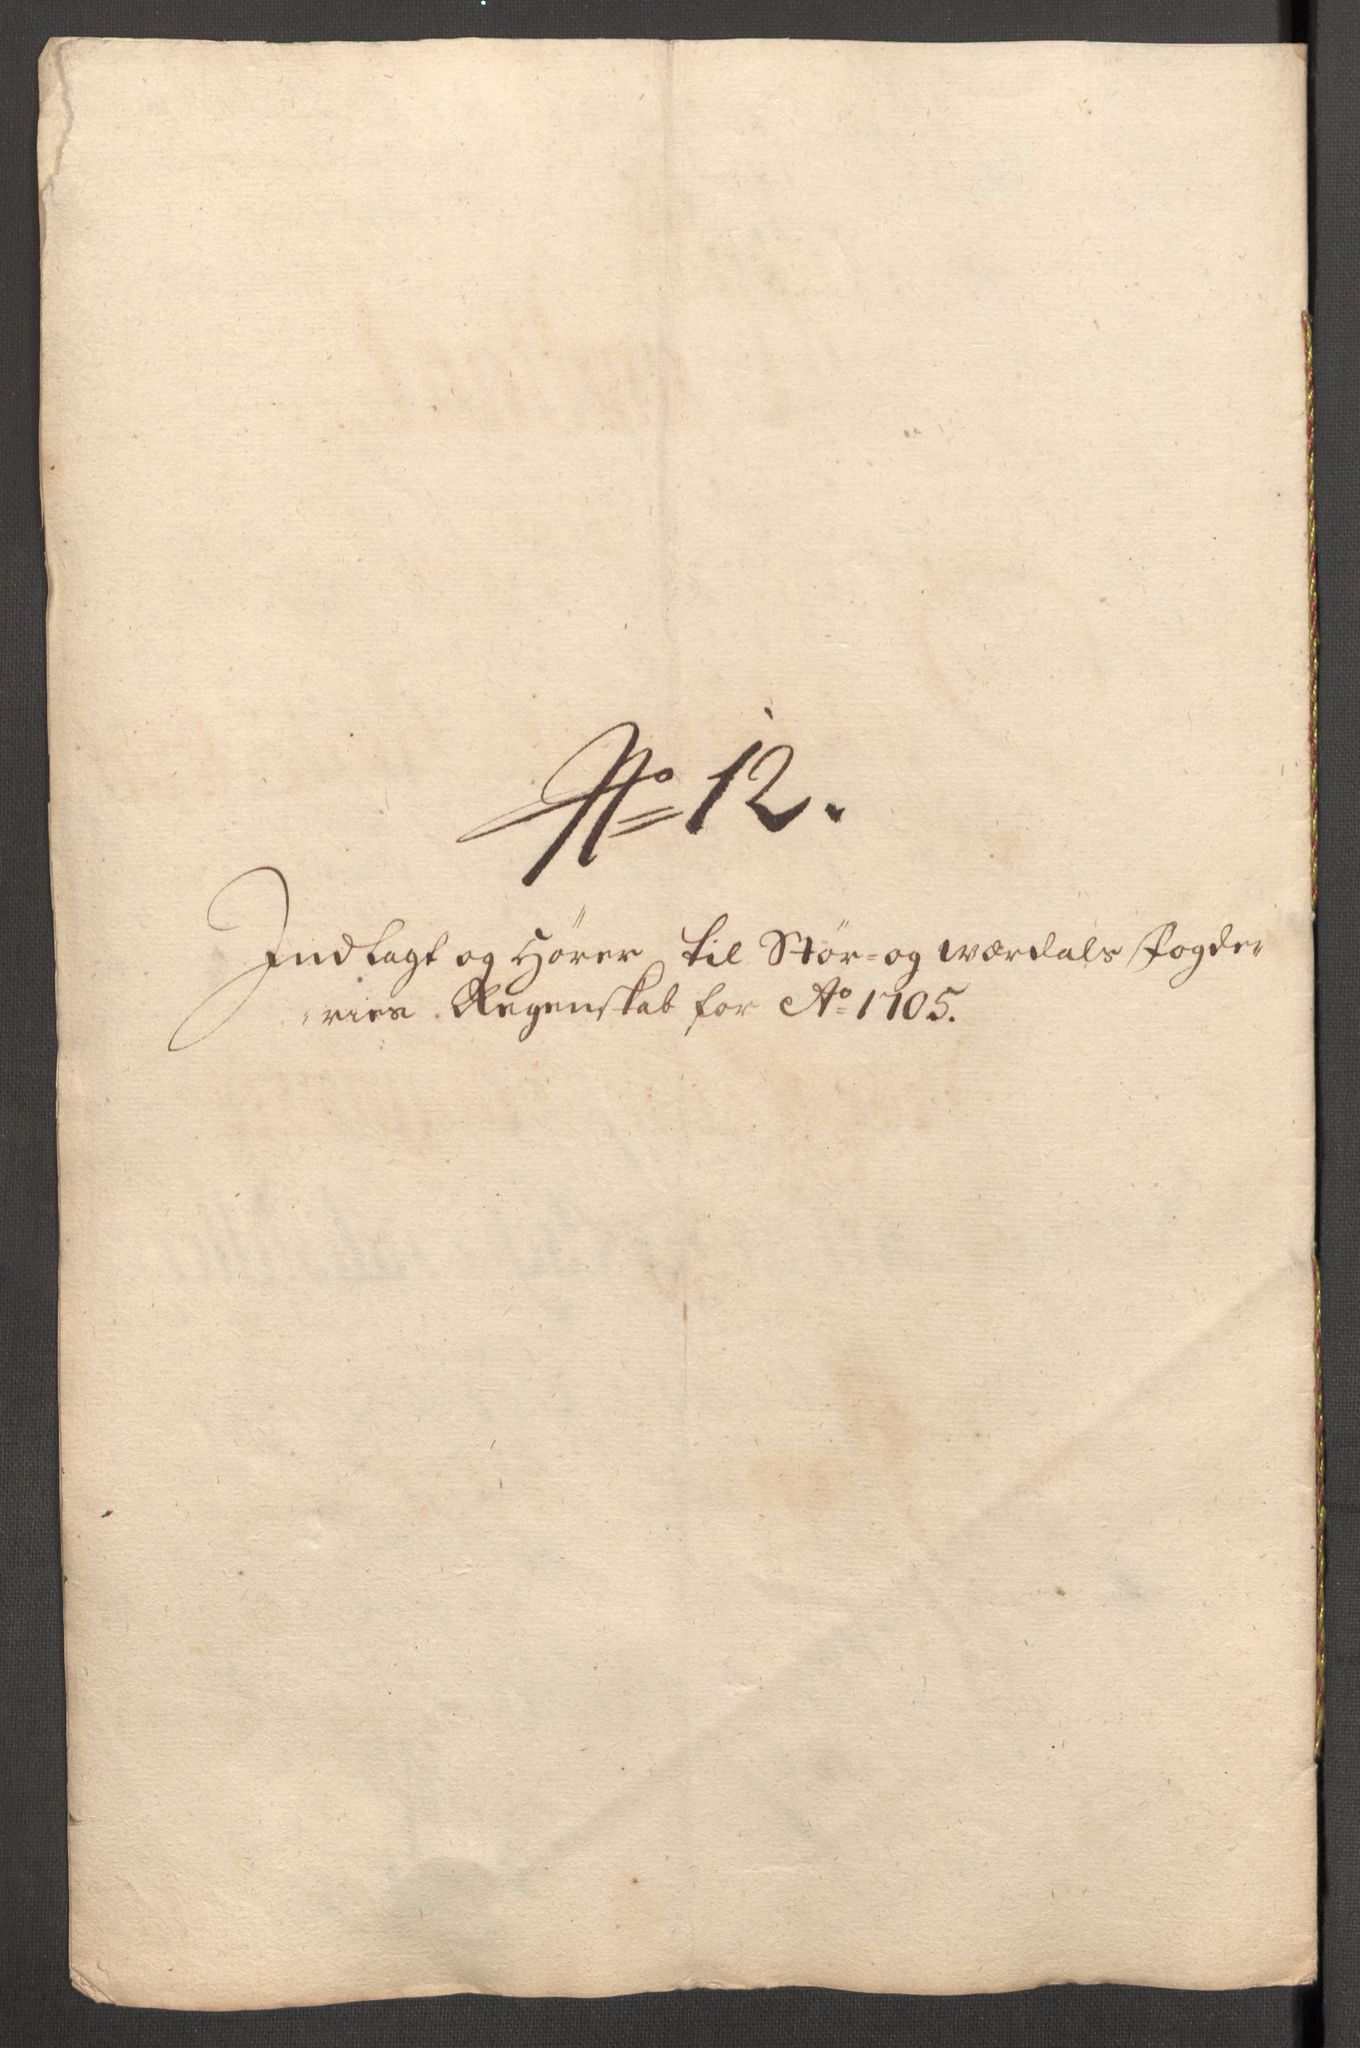 No 12.
Indlagt og Hörer til Stör- og værdals Fogde-
ries Regenskab for Ao 1705.